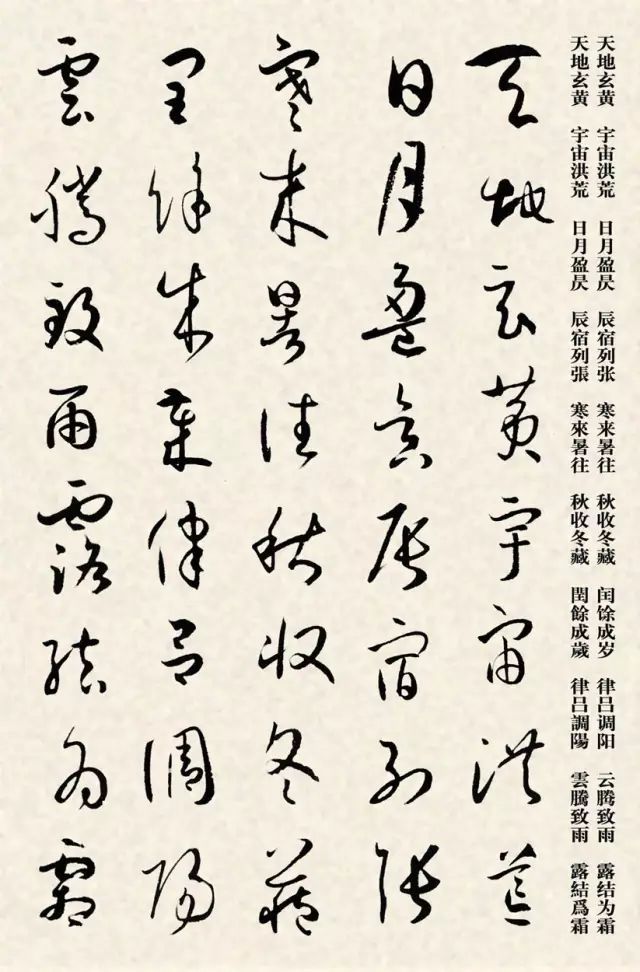 天地玄黄 宇宙洪荒 日月盈昃 辰宿列张 寒来暑往 秋收冬藏 闰馀成岁 律吕调阳 云腾致雨 露结为霜
天地玄黄 宇宙洪荒 日月盈昃 辰宿列張 寒來暑往 秋收冬藏 閏餘成歲 律吕調陽 雲騰致雨 露結爲霜
天地玄黄宇宙洪荒
日月盈昃辰宿列張
寒来暑往秋收冬藏
閏餘成歲律吕調陽
雲騰致雨露結為霜